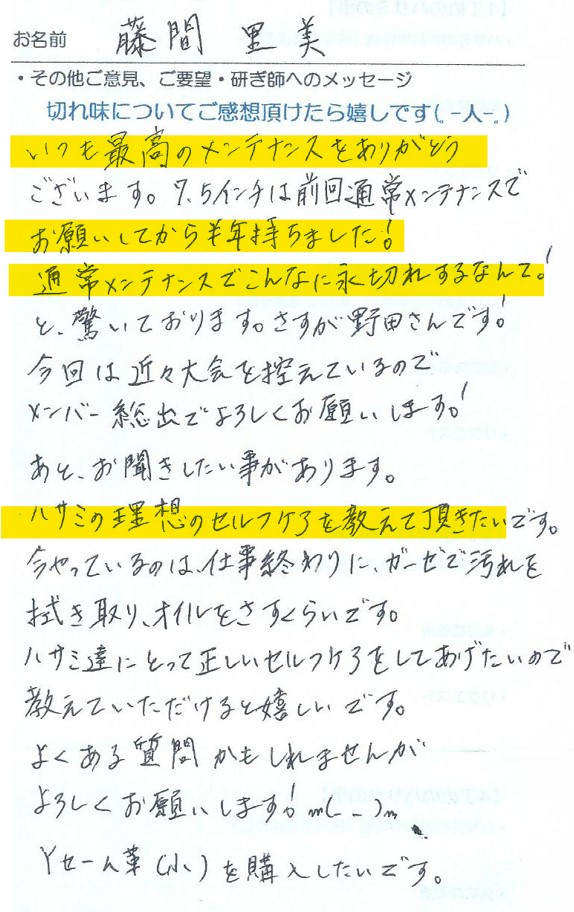 お名前 藤間 里美
・その他ご意見、ご要望・研ぎ師へのメッセージ
切れ味についてご感想頂けたら嬉しです(。-人-。)
いつも最高のメンテナンスをありがとう
ございます。7.5インチは前回通常メンテナンスで
お願いしてから半年持ちました!
通常メンテナンスでこんなに永切れするなんて!
と、驚いております。さすが野田さんです!
今回は近々大会を控えているので
メンバー総出でよろしくお願いします!
あと、お聞きしたい事があります。
ハサミの理想のセルフケアを教えて頂きたいです。
今やっているのは、仕事終わりに、ガーゼで汚れを
拭き取り、オイルをさすくらいです。
ハサミ達にとって正しいセルフケアをしてあげたいので
教えていただけると嬉しいです。
よくある質問かもしれませんが
よろしくお願いします!m(_ _)m
Yセーム革(小)を購入したいです。